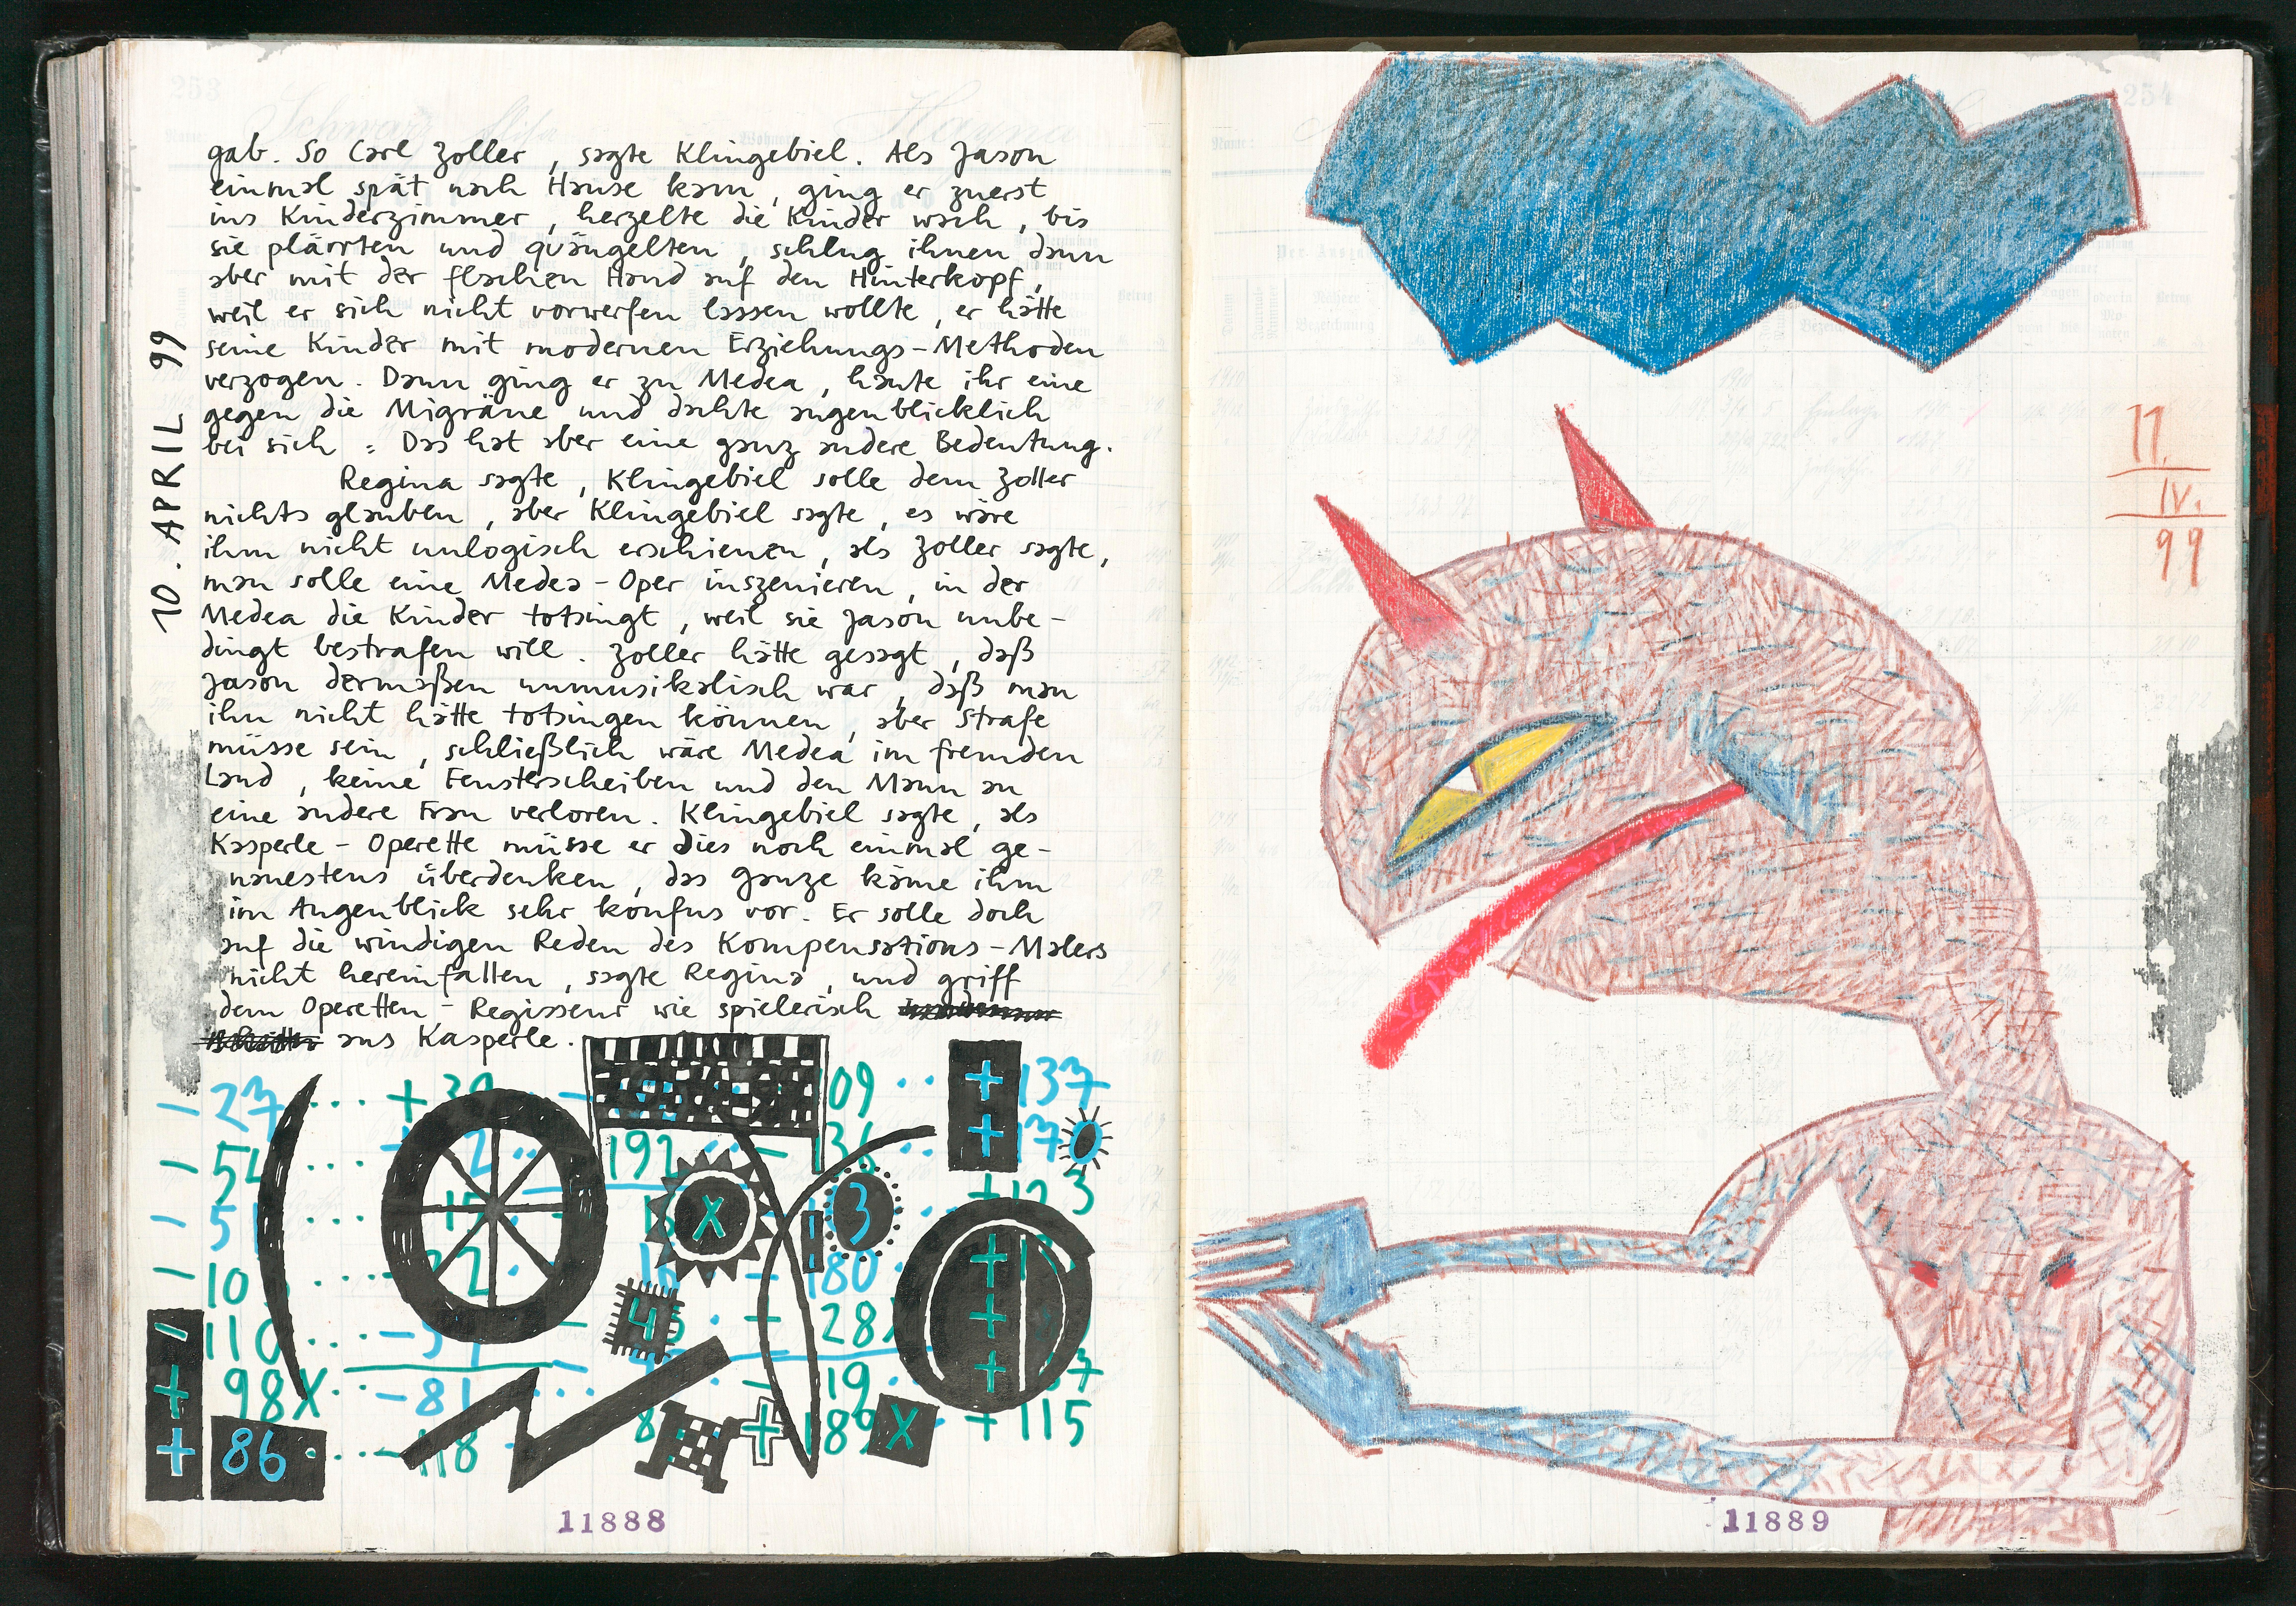 253
10. APRIL 99
gab. So Carl Zoller, sagte Klingebiel. Als Jason
einmal spät nach Hause kam, ging er zuerst
ins Kinderzimmer, herzelte die Kinder wach, bis
sie plärrten und quängelten, schlug ihnen dann
aber mit der flachen Hand auf den Hinterkopf,
weil er sich nicht vorwerfen lassen wollte, er hätte
seine Kinder mit modernen Erziehungs-Methoden
verzogen. Dann ging er zu Medea, haute ihr eine
gegen die Migräne und dachte augenblicklich
bei sich: Das hat aber eine ganz andere Bedeutung.
Regina sagte, Klingebiel solle dem Zoller
nichts glauben, aber Klingebiel sagte, es wäre
ihm nicht unlogisch erschienen, als Zoller sagte,
man solle eine Medea-Oper inszenieren, in der
Medea die Kinder totsingt, weil sie Jason unbe-
dingt bestrafen will. Zoller hätte gesagt, daß
Jason dermaßen unmusikalisch war, daß man
ihn nicht hätte totsingen können, aber Strafe
müsse sein, schließlich wäre Medea im fremden
Land, keine Fensterscheiben und den Mann an
eine andere Frau verloren. Klingebiel sagte, als
Kasperle-Operette müsse er dies noch einmal ge-
nauestens überdenken, das Ganze käme ihm
im Augenblick sehr konfus vor. Er solle doch
auf die windigen Reden des Kompensations-Malers
nicht hereinfallen, sagte Regina, und griff
dem Operetten-Regisseur wie spielerisch
ans Kasperle.
-27 ... +39 .. - 109 .. +137
-54 ... 2 .. 192 .. -136 .. +170
-51 ... 15 X 3 +123
-10 ... 180 +
-110 ... 4 - 28 +
+98X .. -81 ... - 19 +
+86 .... -118 8 +189 X +115
11888
254
11.
IV.
99
11889